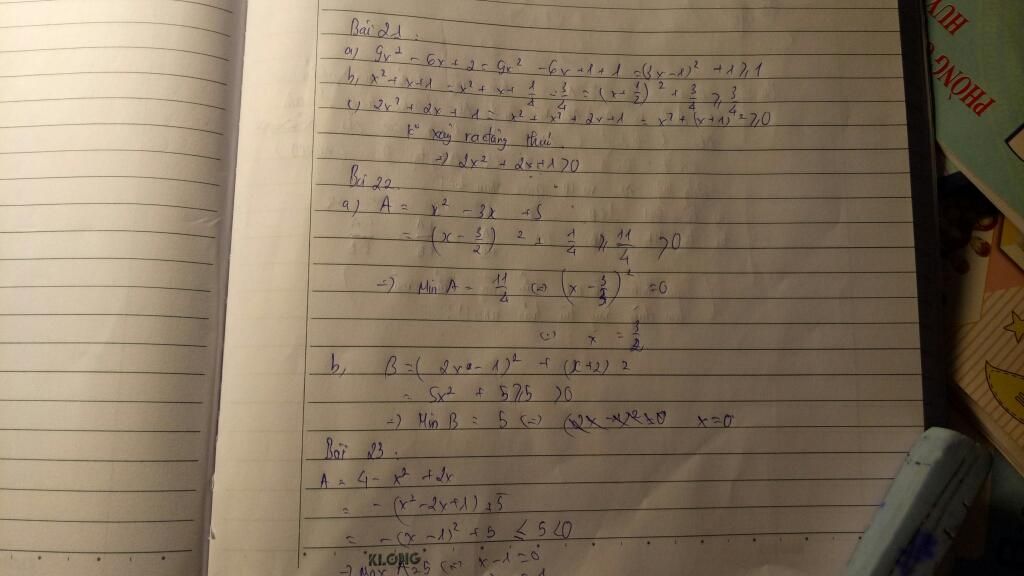 Bài 21.
a) 9x² - 6x + 2 = 9x² - 6x + 1 + 1 = (3x - 1)² + 1 ≥ 1
b, x² + x + 1 = x² + x + 1/4 + 3/4 = (x + 1/2)² + 3/4 ≥ 3/4
c) 2x² + 2x + 1 = x² + x² + 2x + 1 = x² + (x + 1)² ≥ 0
xảy ra đẳng thức
=> 2x² + 2x + 1 > 0
Bài 22.
a) A = x² - 3x + 5
= (x - 3/2)² + 11/4 ≥ 11/4 > 0
=> Min A = 11/4 <=> (x - 3/2)² = 0
<=> x = 3/2
b, B = (2x - 1)² + (x + 2)²
= 5x² + 5 ≥ 5 > 0
=> Min B = 5 <=> x = 0
Bài 23.
A = 4 - x² + 2x
= -(x² - 2x + 1) + 5
= -(x - 1)² + 5 ≤ 5 < 0
KLONG
=> Max A = 5 <=> x - 1 = 0
PHÒNG
HUY